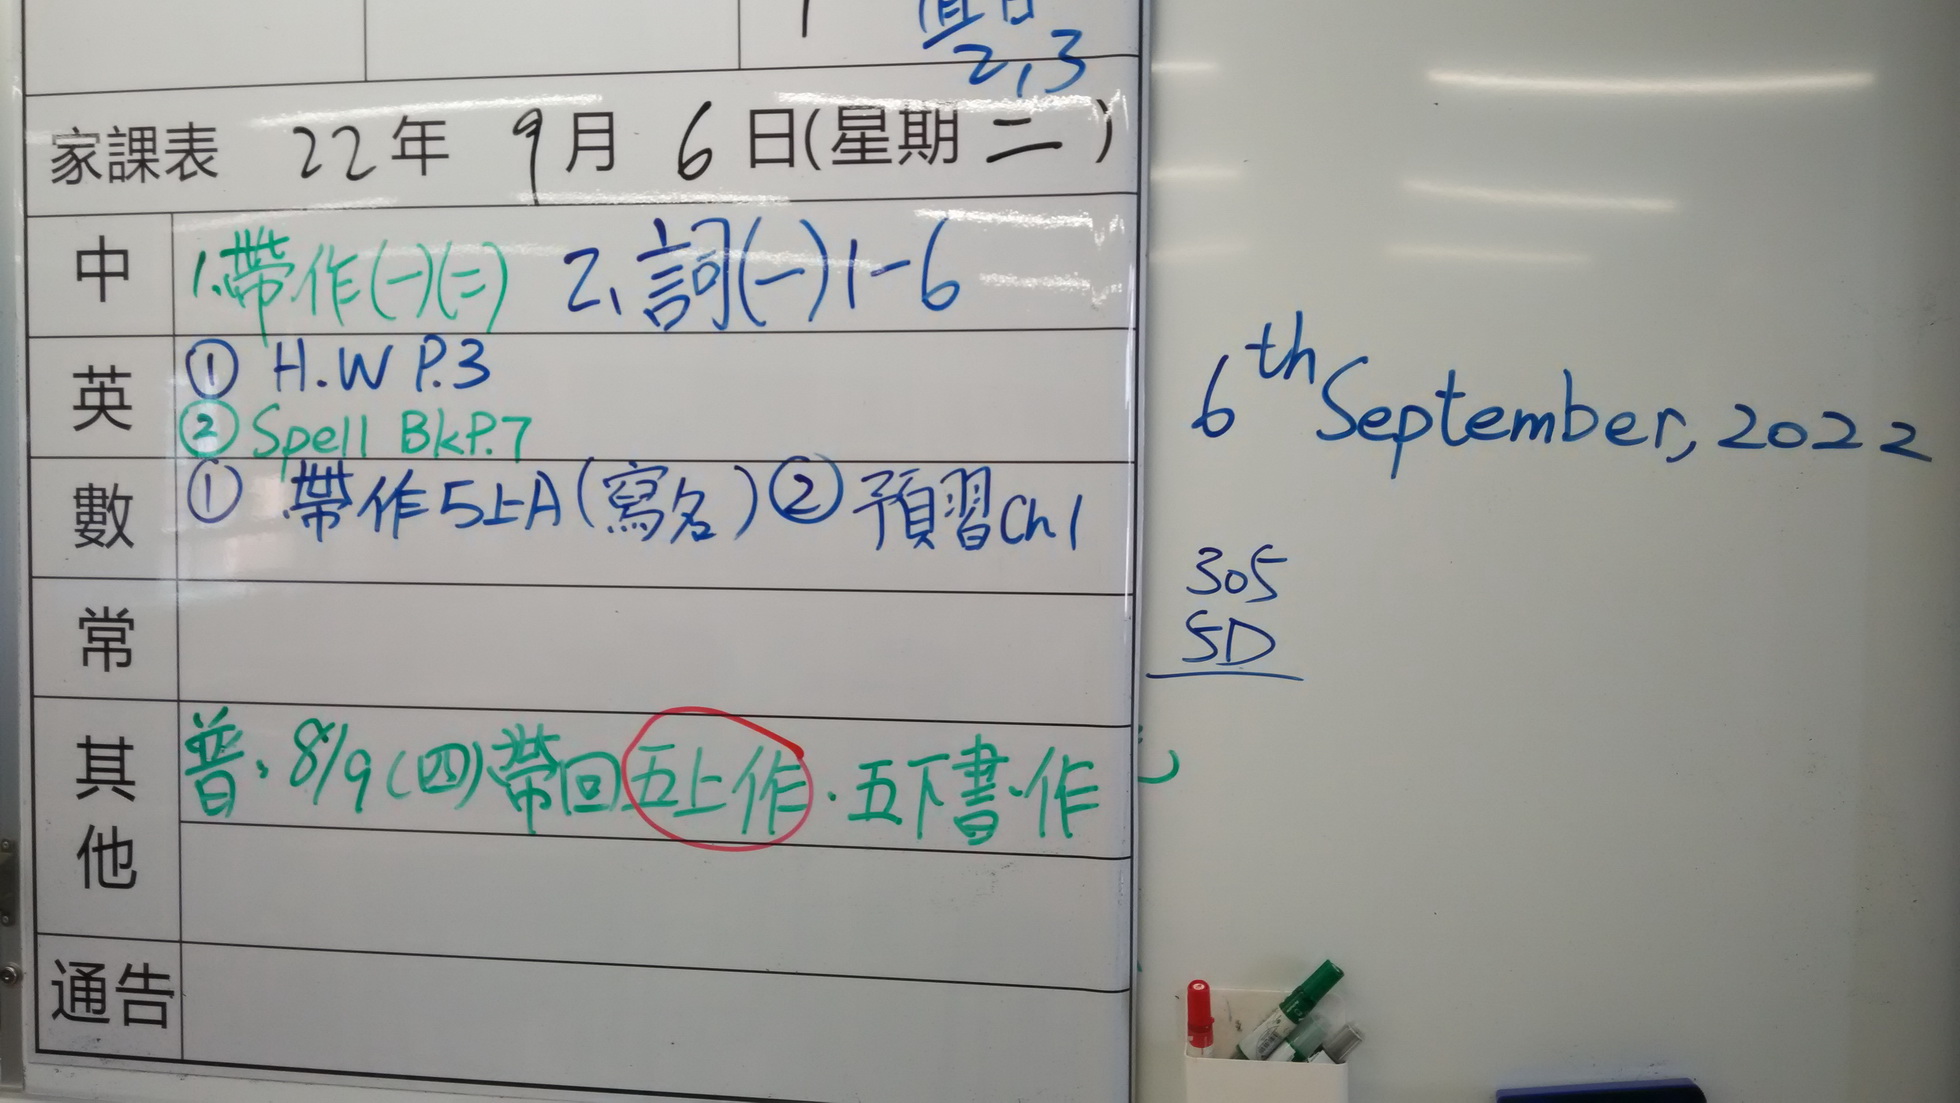 直日
2,3
家課表 22年 9月 6日(星期二)
中 1.帶作(一)(二) 2、詞(一)1-6
英 ① H.W P.3
② Spell Bk P.7
數 ① 帶作5上A(寫名) ② 預習Ch 1
常
其他 普、8/9(四)帶回五上作.五下書.作
通告
6th September, 2022
305
5D